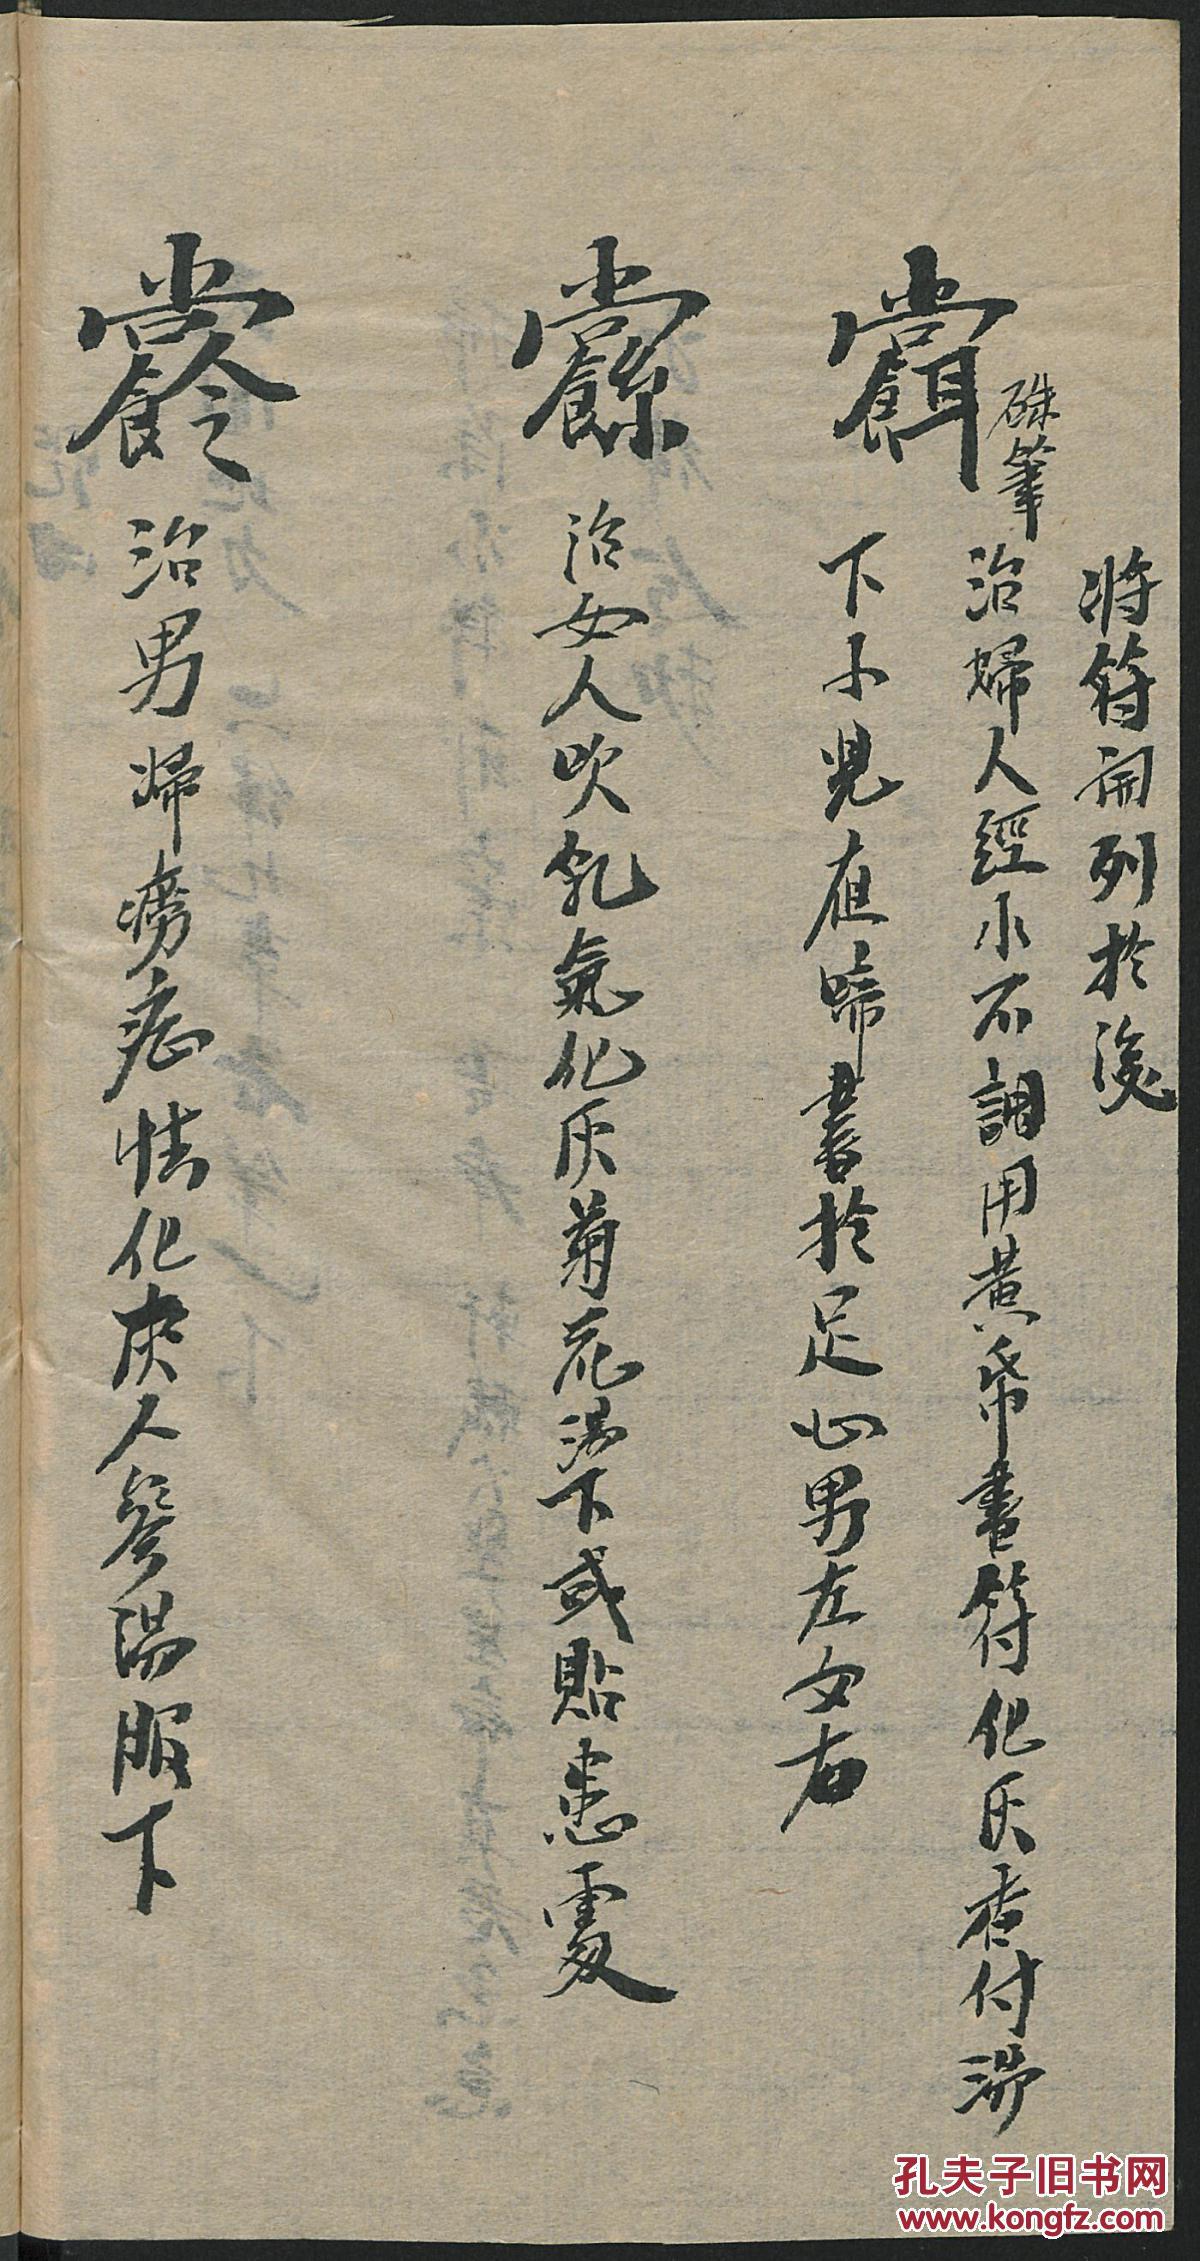 將符開列於後
硃筆
治婦人經水不調用黃帋書符化灰香付湯
下小児夜啼書於足心男左女右
治女人吹乳氣化灰菊花湯下或貼患處
治男婦癆症怯化灰人參湯服下
孔夫子旧书网
www.kongfz.com